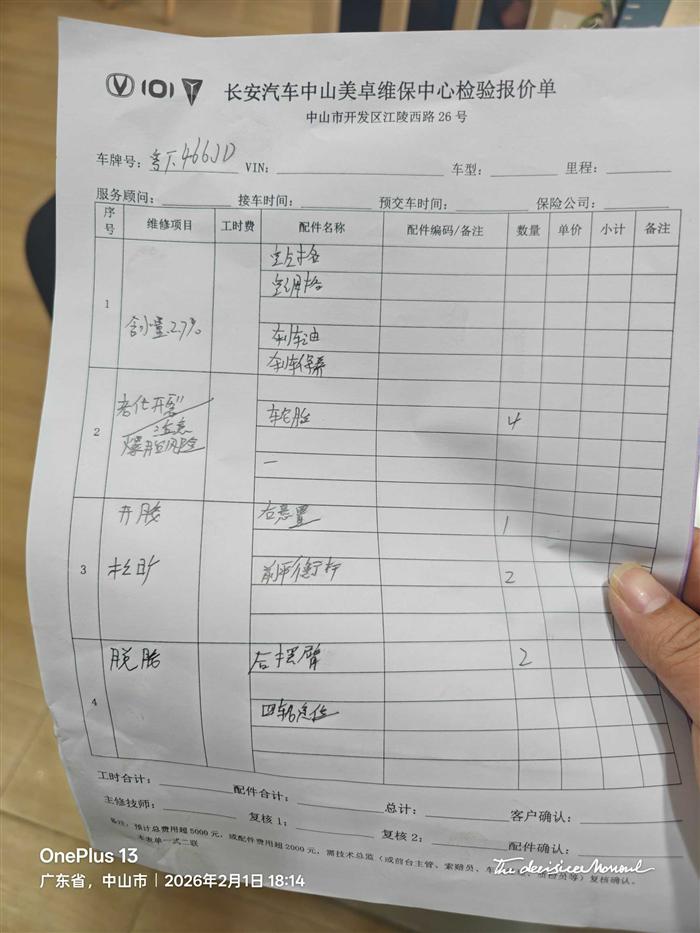 长安汽车中山美卓维保中心检验报价单
中山市开发区江陵西路 26 号
车牌号: 粤T·466JD VIN: 车型: 里程:
服务顾问: 接车时间: 预交车时间: 保险公司:
序号 维修项目 工时费 配件名称 配件编码/备注 数量 单价 小计 备注
空调格
1
含水量2.7% 刹车油
刹车保养
老化开裂 轮胎 4
2 注意
爆胎风险
一
开胶 右悬置 1
3 松旷 前平衡杆 2
脱胶 后摆臂 2
4 四轮定位
工时合计: 配件合计: 总计: 客户确认:
主修技师: 复核 1: 复核 2: 配件确认:
备注: 预计总费用超 5000 元, 或配件费用超 2000 元, 需技术总监 (或前台主管、索赔员、车 复核确认。
本表单一式二联
OnePlus 13
广东省,中山市 | 2026年2月1日 18:14